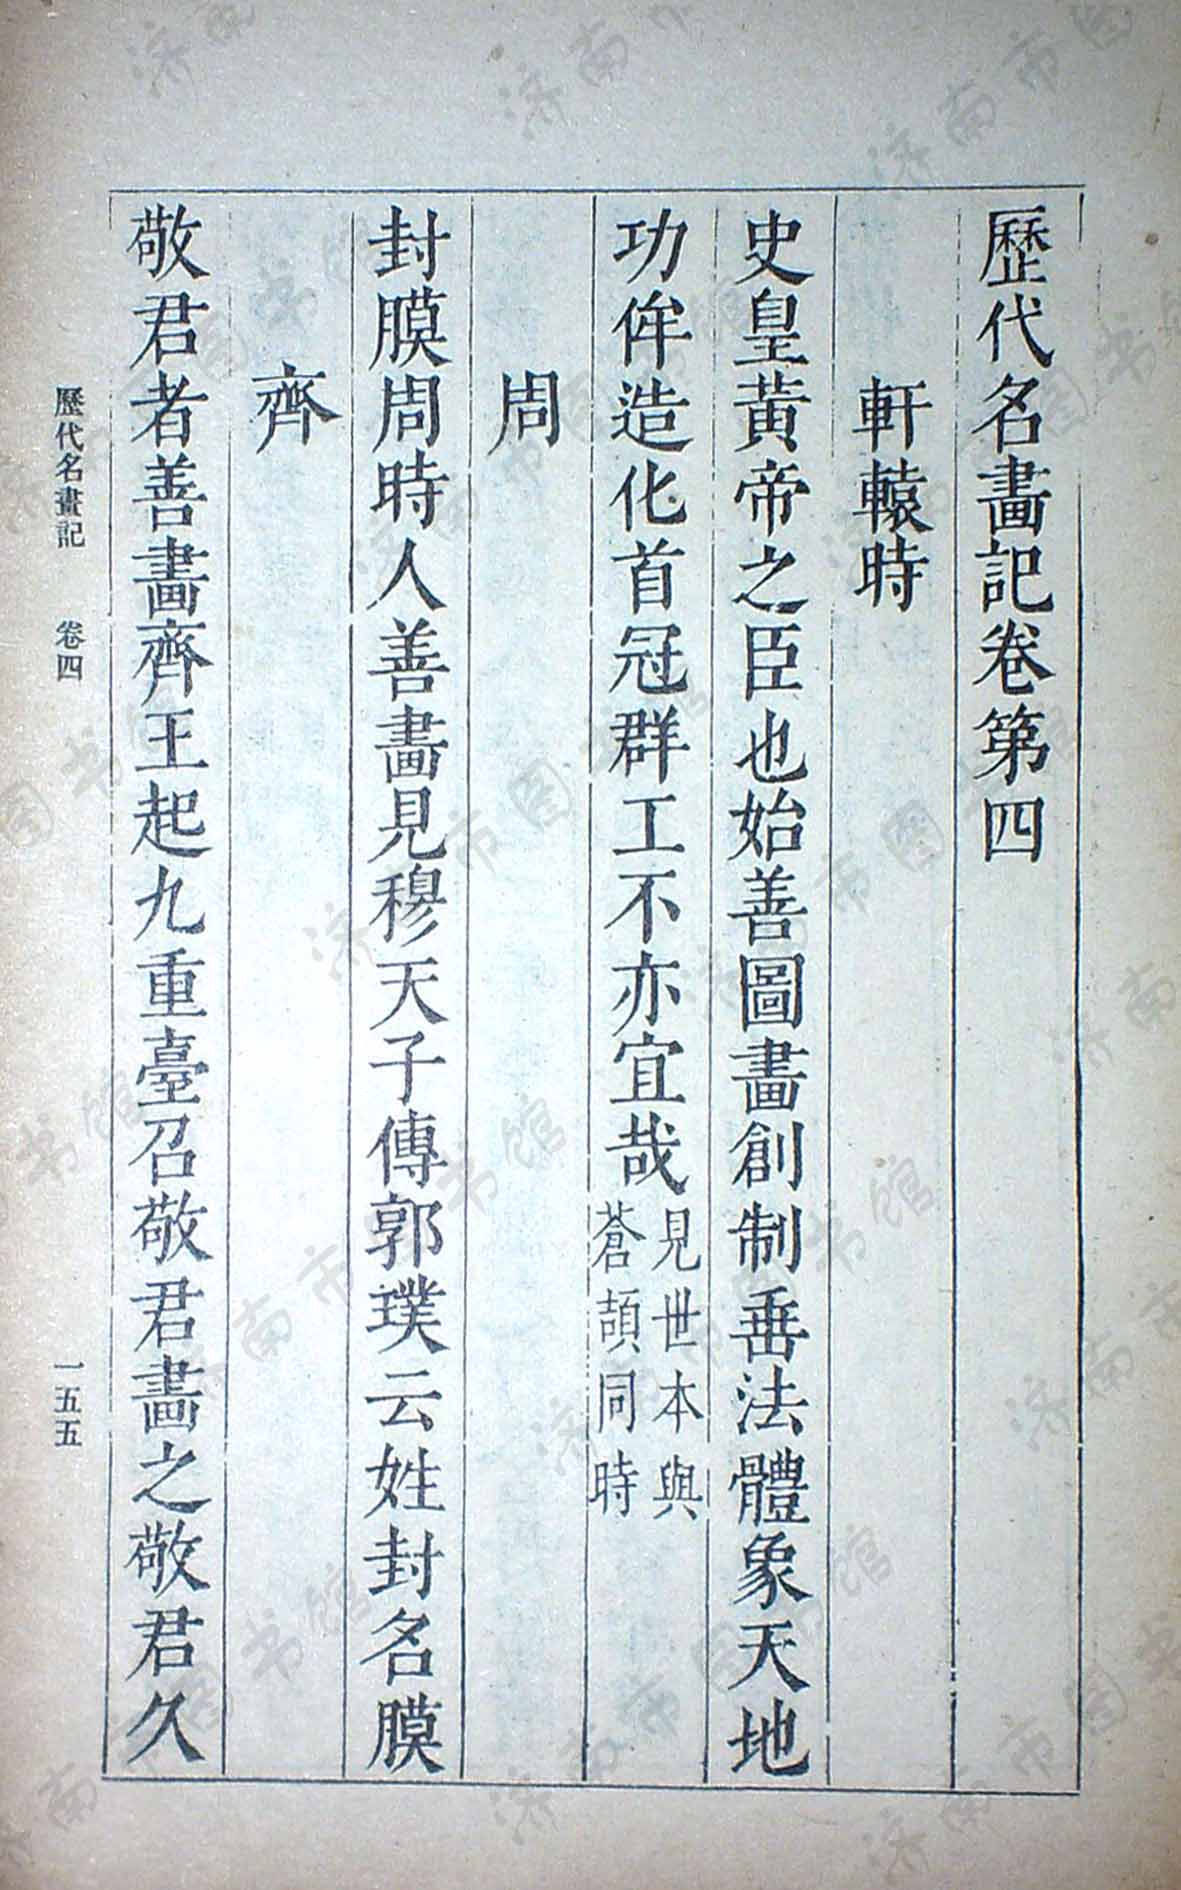 歷代名畫記卷第四
軒轅時
史皇黃帝之臣也始善圖畫創制垂法體象天地
功侔造化首冠群工不亦宜哉見世本與蒼頡同時
周
封膜周時人善畫見穆天子傳郭璞云姓封名膜
齊
敬君者善畫齊王起九重臺召敬君畫之敬君久
歷代名畫記 卷四
一五五
济南市图书馆